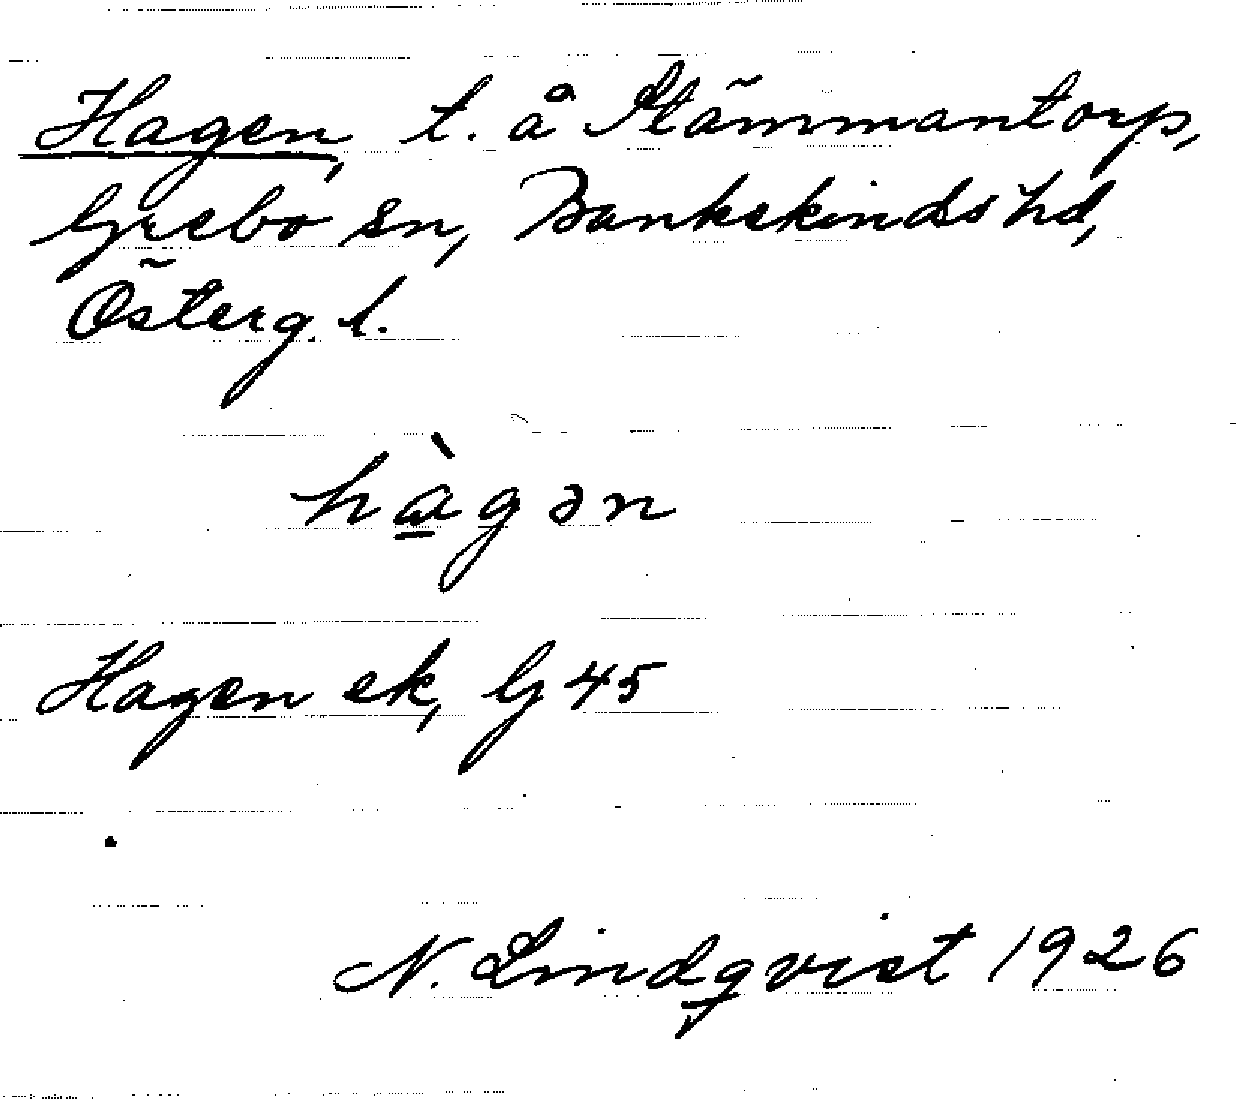 Hagen, t. å Stämmantorp,
Grebo sn, Bankekinds hd,
Österg. l.
hàgən
Hagen ek, G 45
N. Lindqvist 1926